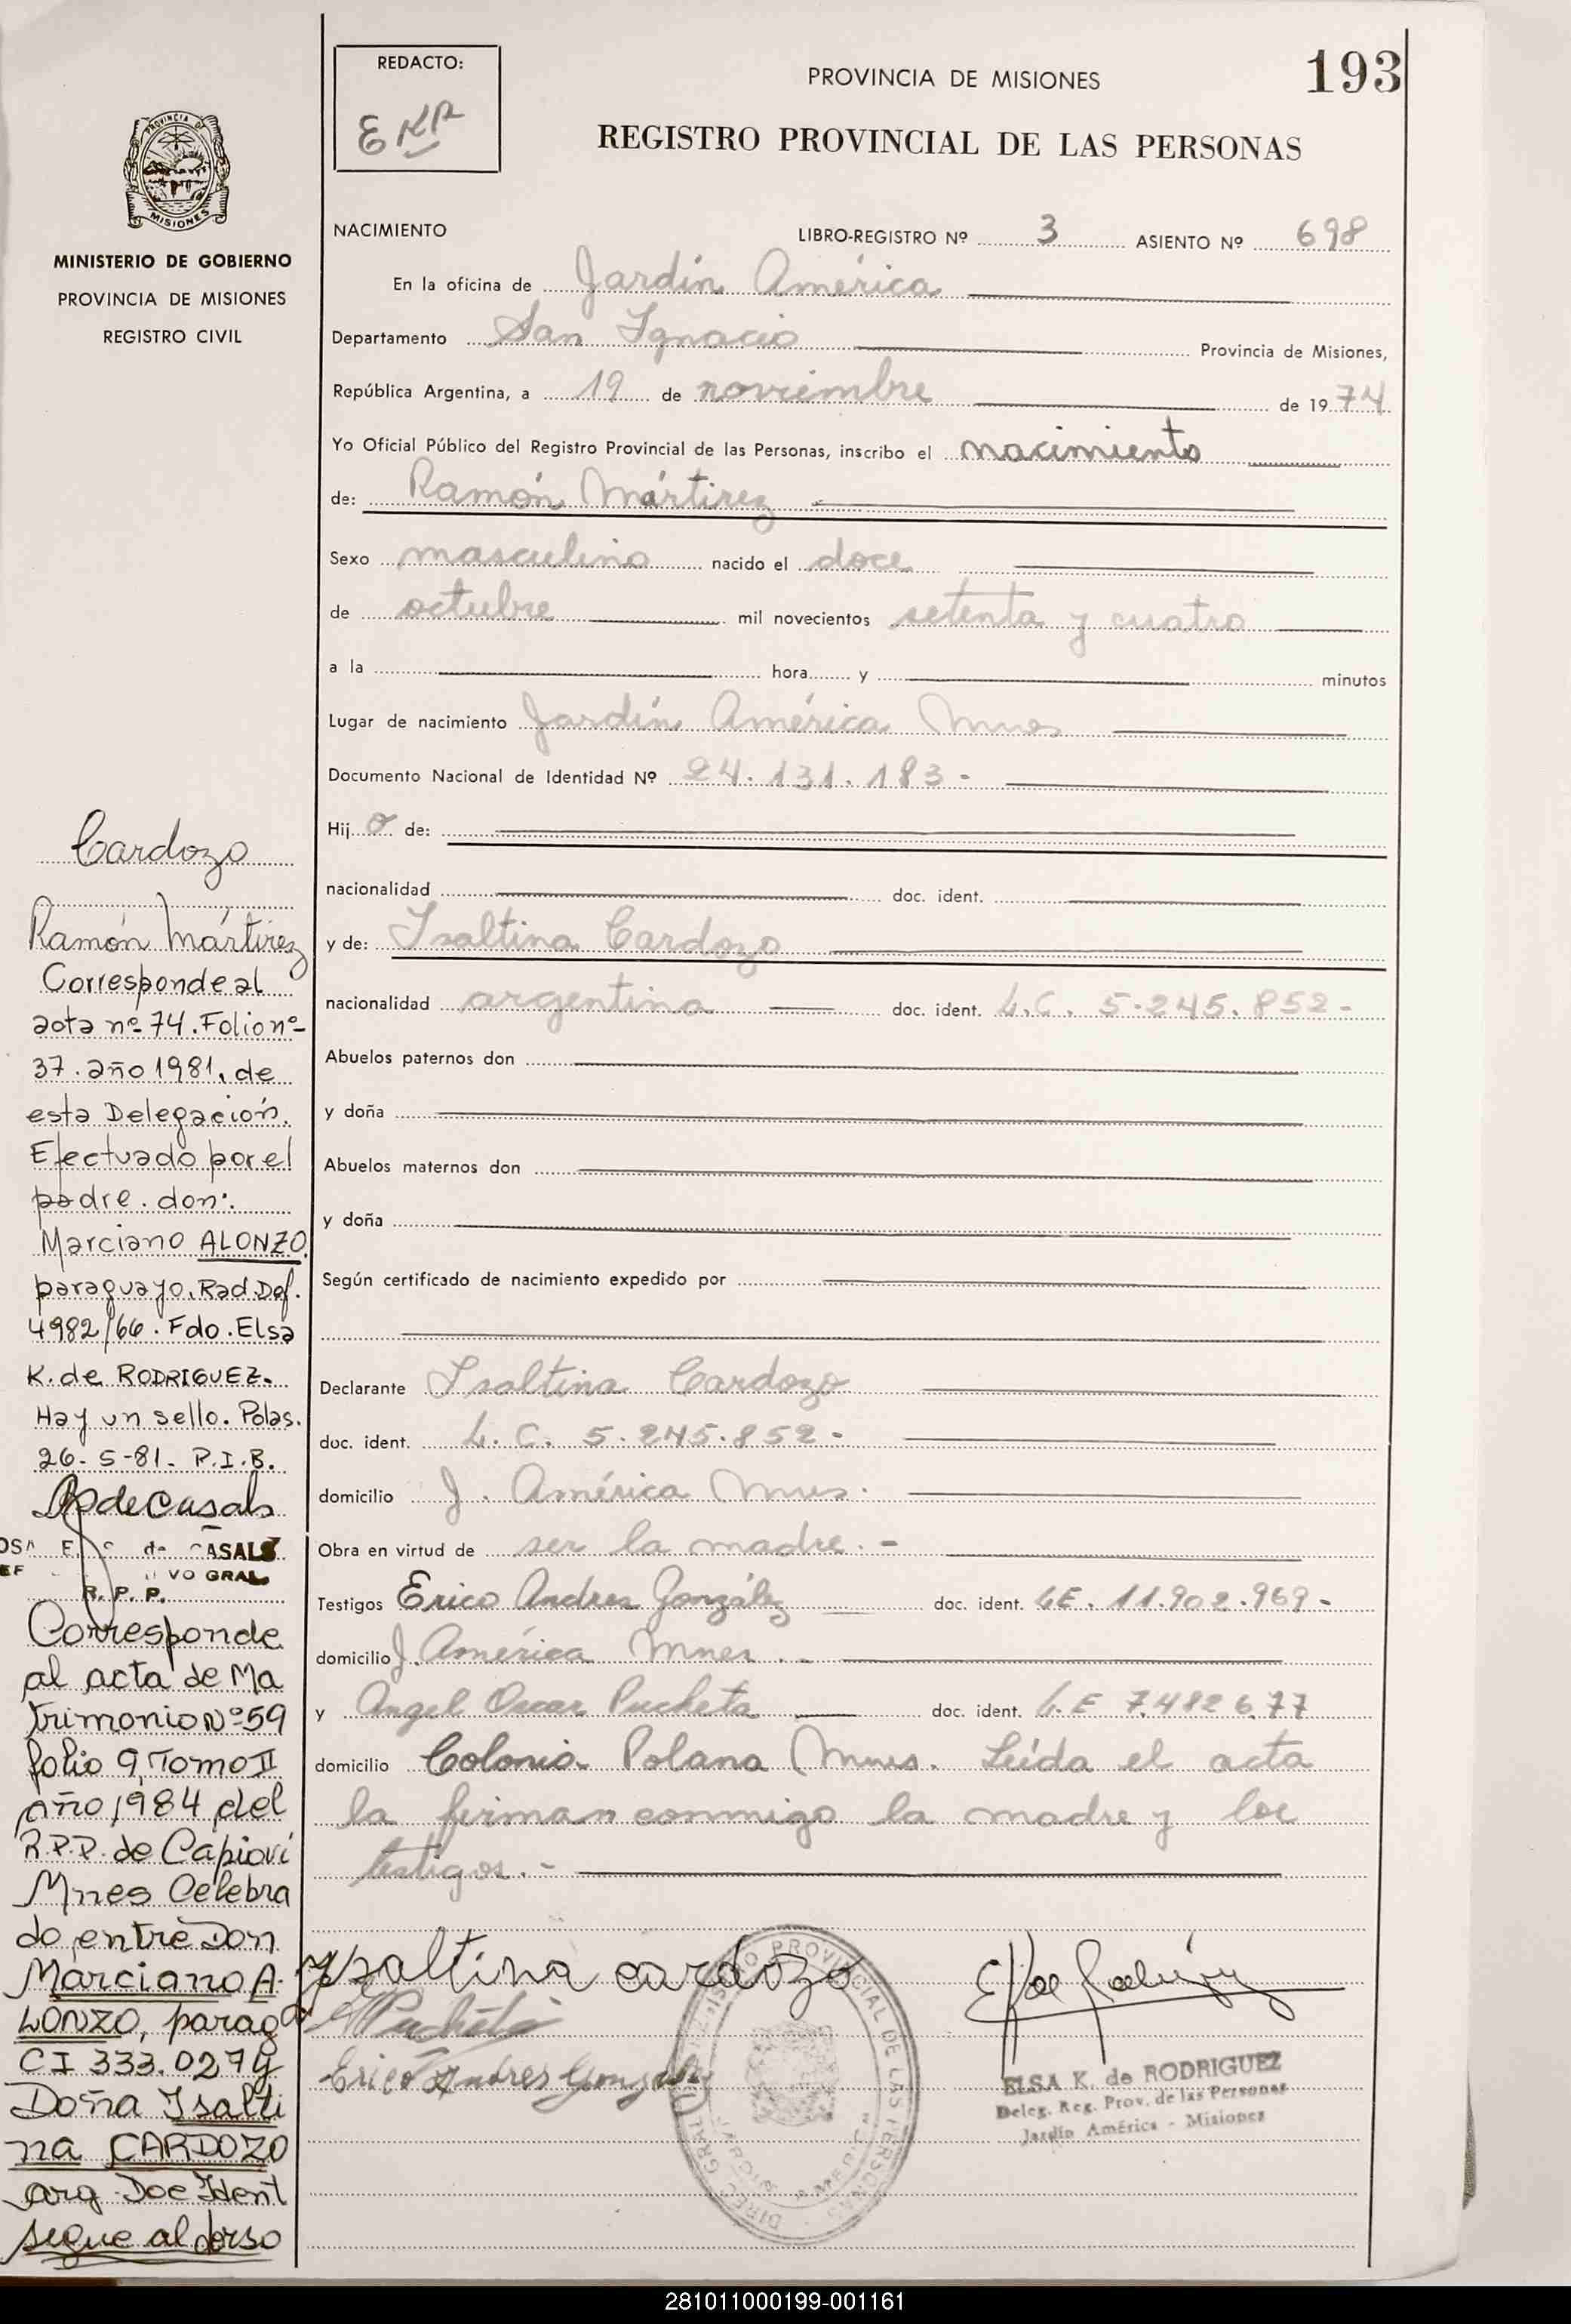 REDACTO:
EKR
PROVINCIA DE MISIONES
193
REGISTRO PROVINCIAL DE LAS PERSONAS
PROVINCIA DE
MISIONES
MINISTERIO DE GOBIERNO
PROVINCIA DE MISIONES
REGISTRO CIVIL
NACIMIENTO
LIBRO-REGISTRO Nº 3 ASIENTO Nº 698
En la oficina de Jardín América
Departamento San Ignacio Provincia de Misiones,
República Argentina, a 19 de noviembre de 1974
Yo Oficial Público del Registro Provincial de las Personas, inscribo el nacimiento
de: Ramón Mártirez
Sexo masculino nacido el doce
de octubre mil novecientos setenta y cuatro
a la hora y minutos
Lugar de nacimiento Jardín América Mnes
Documento Nacional de Identidad Nº 24.131.183-
Hij o de:
nacionalidad doc. ident.
y de: Isaltina Cardozo
nacionalidad argentina doc. ident. L.C. 5.245.852-
Abuelos paternos don
y doña
Abuelos maternos don
y doña
Según certificado de nacimiento expedido por
Declarante Isaltina Cardozo
doc. ident. L.C. 5.245.852-
domicilio J. América Mnes.
Obra en virtud de ser la madre.-
Testigos Erico Andres González doc. ident. LE. 11.902.969-
domicilio J. América Mnes.-
y Angel Oscar Pucheta doc. ident. L.E 7.482.677
domicilio Colonia Polana Mnes. Leída el acta
la firman conmigo la madre y los
testigos.-
Ysaltina cardozo
Pucheta
Erico Andres Gonzalez
DIREC. GRAL. REGISTRO PROVINCIAL DE LAS PERSONAS
JARDIN AMERICA
ELSA K. de RODRIGUEZ
Deleg. Reg. Prov. de las Personas
Jardín América - Misiones
Cardozo
Ramón Mártirez
Corresponde al
acta nº 74. Folio nº
37. año 1981, de
esta Delegación.
Efectuado por el
padre. don:
Marciano ALONZO,
paraguayo. Rad. Def.
4982/66. Fdo. Elsa
K. de RODRIGUEZ.
Hay un sello. Pdas.
26-5-81- P.I.B.
de Casals
de CASALS
VO GRAL.
R. P. P.
Corresponde
al acta de Ma
trimonio Nº 59
folio 9, Tomo II
año 1984 del
R.P.P. de Capiovi
Mnes Celebra
do entre Don
Marciano A
LONZO, parag
CI 333.027 y
Doña Isalti
na CARDOZO
arg. Doc Ident
segue al dorso
281011000199-001161